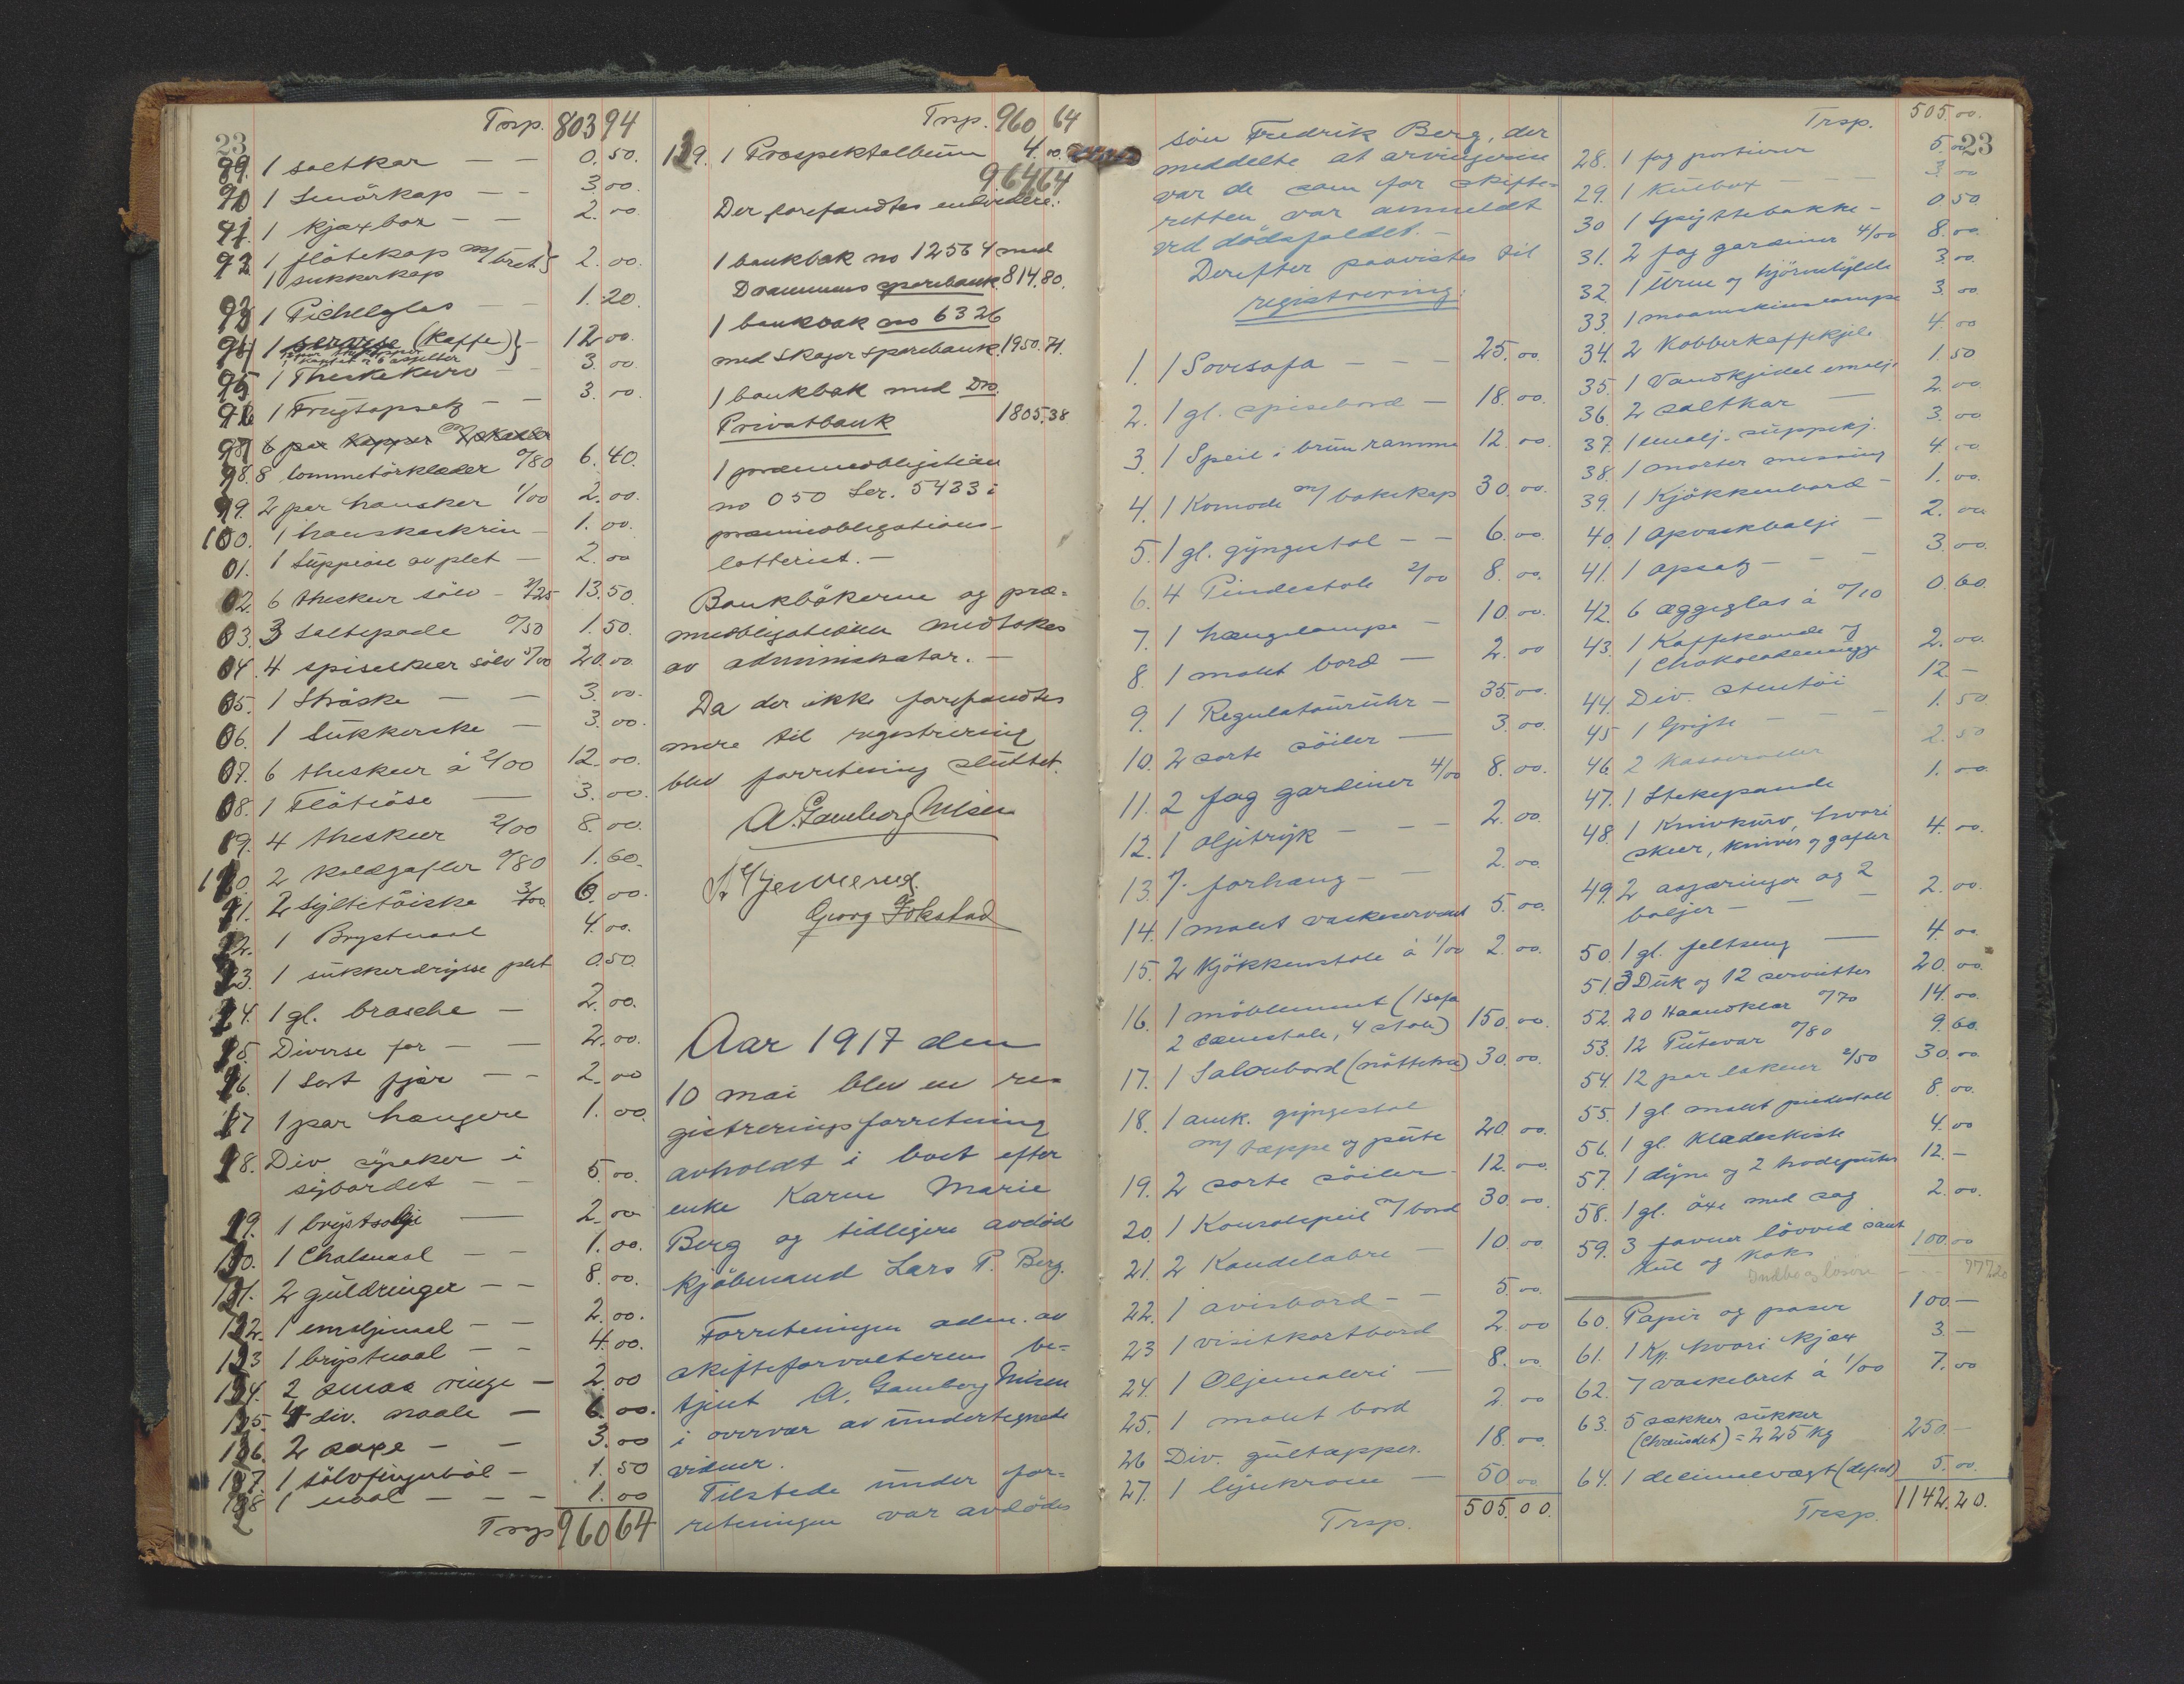 23
Trsp. 803 94
89. 1 saltkar — — 0.50.
90 1 Smörkop — — 3.00
91. 1 kjaxbox — — 2.00
92 1 flötekop m/ bret } 2.00.
1 sukkerkop
93 1 Pichelglas — — 1.20
94 1 (kaffe) } — 12.00.
95 1 Theskekurv — — 3.00
96 1 Frugtopsats — — 3.00
97 6 par kopper
98. 8 lommetörklæder 0/80 6.40.
99. 2 par hansker 1/00 2.00.
100. 1 hanskeskrin — 1.00.
01. 1 Suppeøse av plet — 2.00
02. 6 theskeer sölv — 2/25 13.50.
03. 3 Saltspade 0/50 1.50.
04. 4 spiseskeer sölv 5/00 20.00.
05. 1 Ströske — — 3.00.
06. 1 Sukkerske — 3.00.
07. 6 theskeer à 2/00 12.00.
08. 1 Flöteöse — 3.00.
09. 4 theskeer 2/00 8.00.
110 2 koldgafler 0/80 1.60.
11. 2 Syltetöiske 3/00 6.00.
12. 1 Brystnaal 4.00.
13. 1 sukkerdrysse plet 0.50.
14. 1 gl. brosche — 2.00.
15. Diverse for — — 2.00.
16. 1 Sort fjær — — 2.00
17 1 par hængere 1.00
18. Div sysaker i
sybordet — — 5.00.
19. 1 brystsölje — 2.00
120. 1 Chalsnaal — — 1.00.
121. 2 guldringer — — 8.00.
122. 1 emaljenaal — — 2.00.
123 1 brystnaal — — 4.00.
124. 2 smaa ringe — 2.00
125. 4 div. naale — 6.00.
126. 2 saxe — — 3.00
127. 1 sölvfingerböl — 1.50
128 1 naal — — — 1.00
Trsp 960 64
Trsp. 960 64
129. 1 Prospektalbum 4.00.
964 64
Der forefandtes endvidere:
1 bankbok no 12564 med
Drammens sparebank 814.80.
1 bankbok no 6326
med Skoger Sparebank 1950.71.
1 bankbok med Dr.
Privatbank 1805.38
1 præmieobligation
no 050 Ser. 5433 i
præmieobligations-
lotteriet. —
Bankbökerne og præ-
mieobligationen medtokes
av administrator. —
Da der ikke forefandtes
mere til registrering
blev forretning sluttet.
A. Gamborg Nilsen
Georg Fokstad
Aar 1917 den
10 mai blev en re-
gistreringsforretning
avholdt i boet efter
enke Karen Marie
Berg og tidligere avdöd
kjöbmand Lars P. Berg.
Forretningen adm. av
skifteforvalterens be-
tjent A. Gamborg Nilsen
i overvær av undertegnede
vidner.
Tilstede under for-
retningen var avdödes
sön Fredrik Berg, der
meddelte at arvingerne
var de som for skifte-
retten var anmeldt
ved dödsfaldet. —
Derefter paavistes til
registrering:
1. 1 Sovesofa — — — 25.00.
2. 1 gl. spisebord — 18.00.
3. 1 Speil i brun ramme 12.00.
4. 1 Komode m/ bokskap 30.00.
5. 1 gl. gyngestol — — 6.00.
6. 4 Pindestole 2/00 8.00.
7. 1 hængelampe — 10.00.
8. 1 malet bord — 2.00
9. 1 Regulatöruhr — 35.00.
10. 2 sorte söiler — 3.00.
11. 2 fag gardiner 4/00 8.00.
12. 1 oljetryk — — — 2.00.
13. 1 forhæng — — 2.00
14. 1 malet vaskeservant 5.00.
15. 2 Kjökkenstole à 1/00 2.00.
16. 1 möblement (1 sofa
2 damestole, 4 stole) 150.00.
17. 1 Salonbord (nöttetræ) 30.00.
18. 1 amk. gyngestol
m/ tæppe og pute 20.00
19. 2 sorte söiler — 12.00.
20. 1 Konsolspeil m/ bord 30.00.
21. 2 Kandelabre — 10.00
22. 1 avisbord — — 5.00.
23 1 visitkortbord 2.00
24. 1 Oljemaleri — 8.00.
25. 1 malet bord 2.00
26 Div. gultæpper. 18.00.
27. 1 lysekrone — 50.00
Trsp. 505.00.
23
Trsp. 505.00.
28. 1 fag portierer 5.00
29. 1 Kulbox — — — 3.00
30 1 Spyttebakke — 0.50.
31. 2 fag gardiner 4/00 8.00.
32. 1 Urne og hjörnehylde 3.00.
33. 1 maaneskinslampe 3.00
34. 2 Kobberkaffekjele 4.00
35. 1 Vandkjedel emalje 1.50
36. 2 saltkar — 2.00
37. 1 emalj. suppekj. 3.00
38. 1 morter messing 4.00
39. 1 Kjökkenbord — 1.00.
40. 1 opvaskbalje — 2.00
41. 1 opsats — — 3.00.
42. 6 æggeglas à 0/10 0.60.
43. 1 Kaffekande og
1 Chokolademugge 2.00.
44. Div. stentöi 12 —
45 1 Gryte — — — 1.50
46. 2 Kasseroller 2.50
47. 1 Stekepande 1.00.
48. 1 Knivkurv, hvori
skeer, kniver og gafler 4.00.
49. 2 aspæringer og 2
baljer — — — 2.00.
50. 1 gl. feltseng — 4.00
51. 3 Duk og 12 servietter 20.00.
52. 20 Haandklær 0/70 14.00.
53. 12 Putevar 0/80 9.60.
54. 12 par lakener 2/50 30.00.
55. 1 gl malet pindestoll 8.00.
56. 1 gl. Klædeskiste 4.00
57. 1 dyne og 2 hodeputer 12.—
58. 1 gl. öxe med sag 2.00.
59. 3 favner lövved samt
kul og Koks 100.00
Indbo og lösöre — — 777.20
60. Papir og poser 100.—
61. 1 Kp. hvori kjæx 3.—
62. 7 vaskebret à 1/00 7.00
63. 5 sækker sukker
= 225 kg 250.—
64. 1 decimalvægt (defect) 5.00.
Trsp. 1142.20.